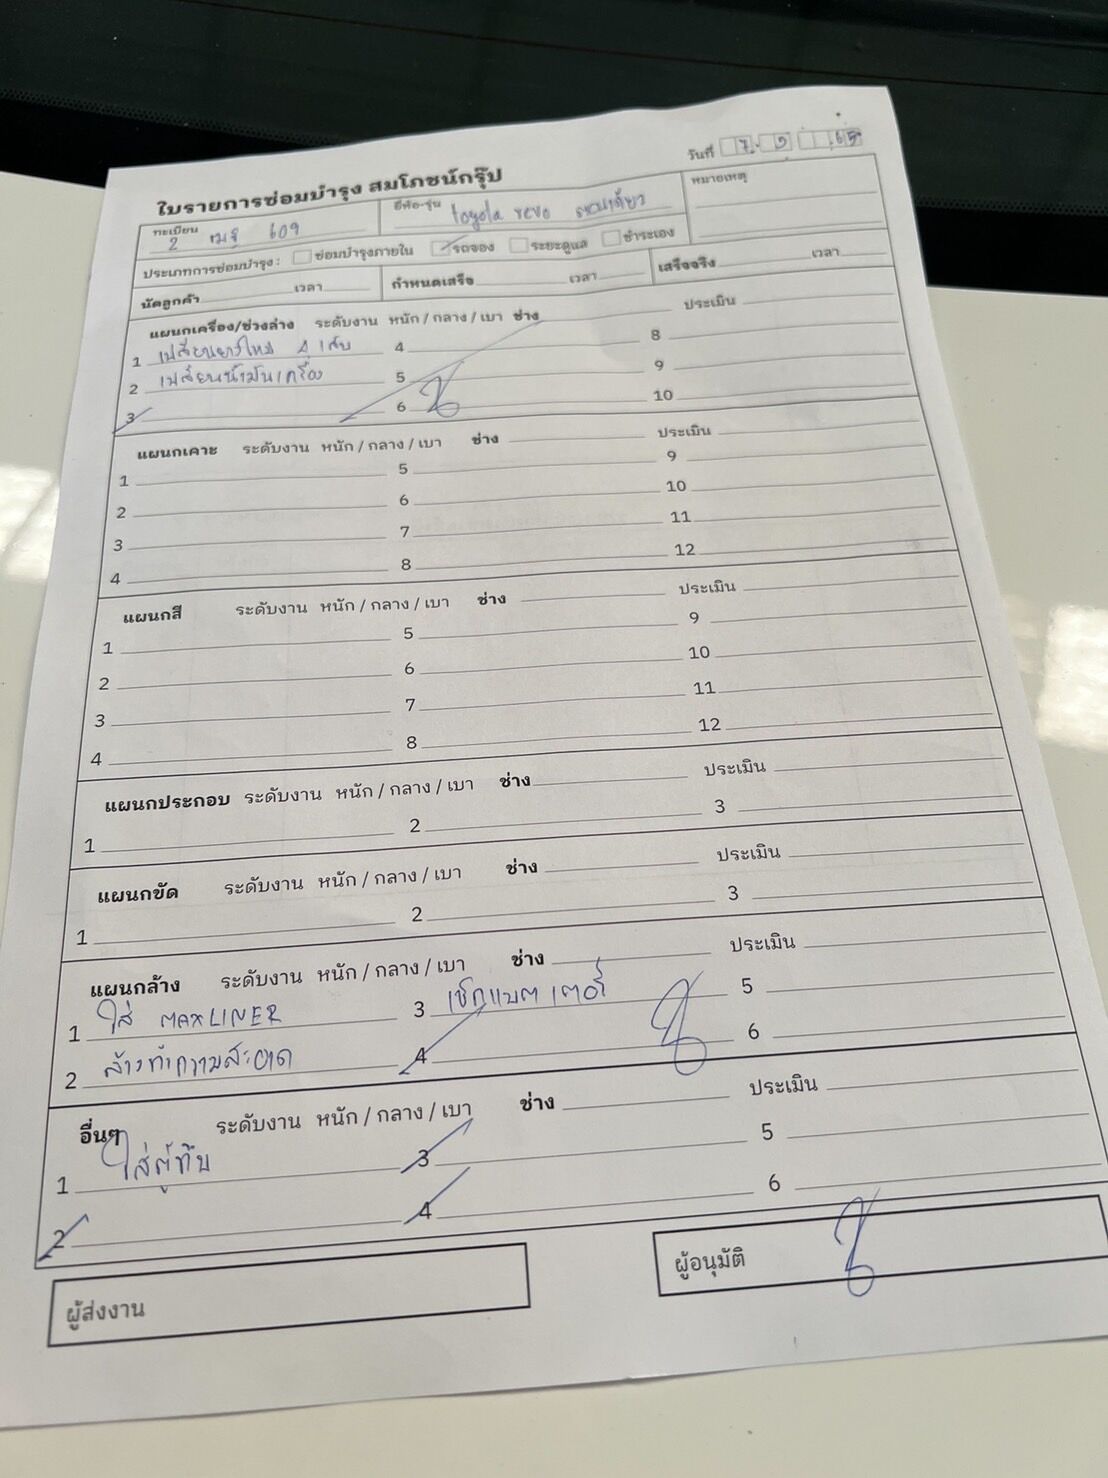 วันที่ 7 9 65
ใบรายการซ่อมบำรุง สมโภชน์กรุ๊ป
ทะเบียน 2 ฒฐ 609 ยี่ห้อ-รุ่น toyota revo ตอนเดียว หมายเหตุ
ประเภทการซ่อมบำรุง : ซ่อมบำรุงภายใน รถจอง ระยะดูแล ชำระเอง
นัดลูกค้า เวลา กำหนดเสร็จ เวลา เสร็จจริง เวลา
แผนกเครื่อง/ช่วงล่าง ระดับงาน หนัก / กลาง / เบา ช่าง ประเมิน
1 เปลี่ยนยางใหม่ 4 เส้น 4 8
2 เปลี่ยนน้ำมันเครื่อง 5 9
3 6 10
แผนกเคาะ ระดับงาน หนัก / กลาง / เบา ช่าง ประเมิน
1 5 9
2 6 10
3 7 11
4 8 12
แผนกสี ระดับงาน หนัก / กลาง / เบา ช่าง ประเมิน
1 5 9
2 6 10
3 7 11
4 8 12
แผนกประกอบ ระดับงาน หนัก / กลาง / เบา ช่าง ประเมิน
1 2 3
แผนกขัด ระดับงาน หนัก / กลาง / เบา ช่าง ประเมิน
1 2 3
แผนกล้าง ระดับงาน หนัก / กลาง / เบา ช่าง ประเมิน
1 ใส่ MAXLINER 3 เช็กแบตเตอรี่ 5
2 ล้างทำความสะอาด 4 6
อื่นๆ ระดับงาน หนัก / กลาง / เบา ช่าง ประเมิน
1 ใส่ตู้ทึบ 3 5
2 4 6
ผู้ส่งงาน ผู้อนุมัติ